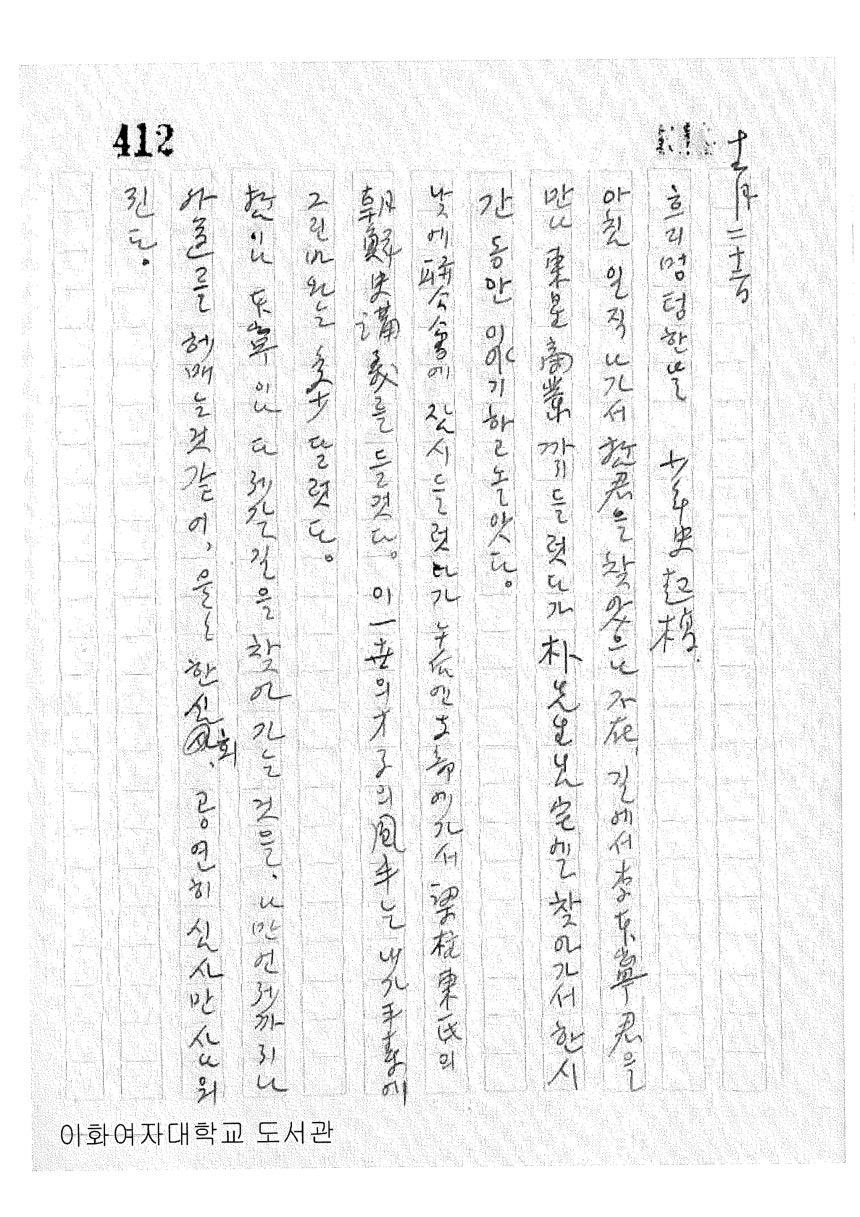 412
十月二十三日
흐리멍텅한 날 少年史 起稿.
아침 일직 나가서 君을 찾앗으나 不在, 길에서 李東寧君을
만나 東星商業까지 들렷다가 朴先生 先生宅엘 찾아가서 한시
간 동안 이야기하고 놀앗다.
낮에 聯合會에 잠시 들럿다가 午后엔 支部에 가서 梁柱東氏의
朝鮮史講義를 들것다. 이 一世의 才子의 風手는 내가 平素에
그린바와는 多少 달럿다.
있나 東寧 있나 다 제각길을 찾아가는 것을, 나만 언제까지나
아道를 헤매는것 같어, 을는 한심회, 공연히 심사만 사나워
진다.
이화여자대학교 도서관